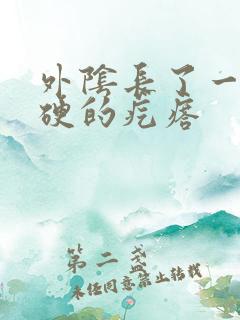 外陰長了一
硬的疙瘩
第二盞
未经同意禁止转载